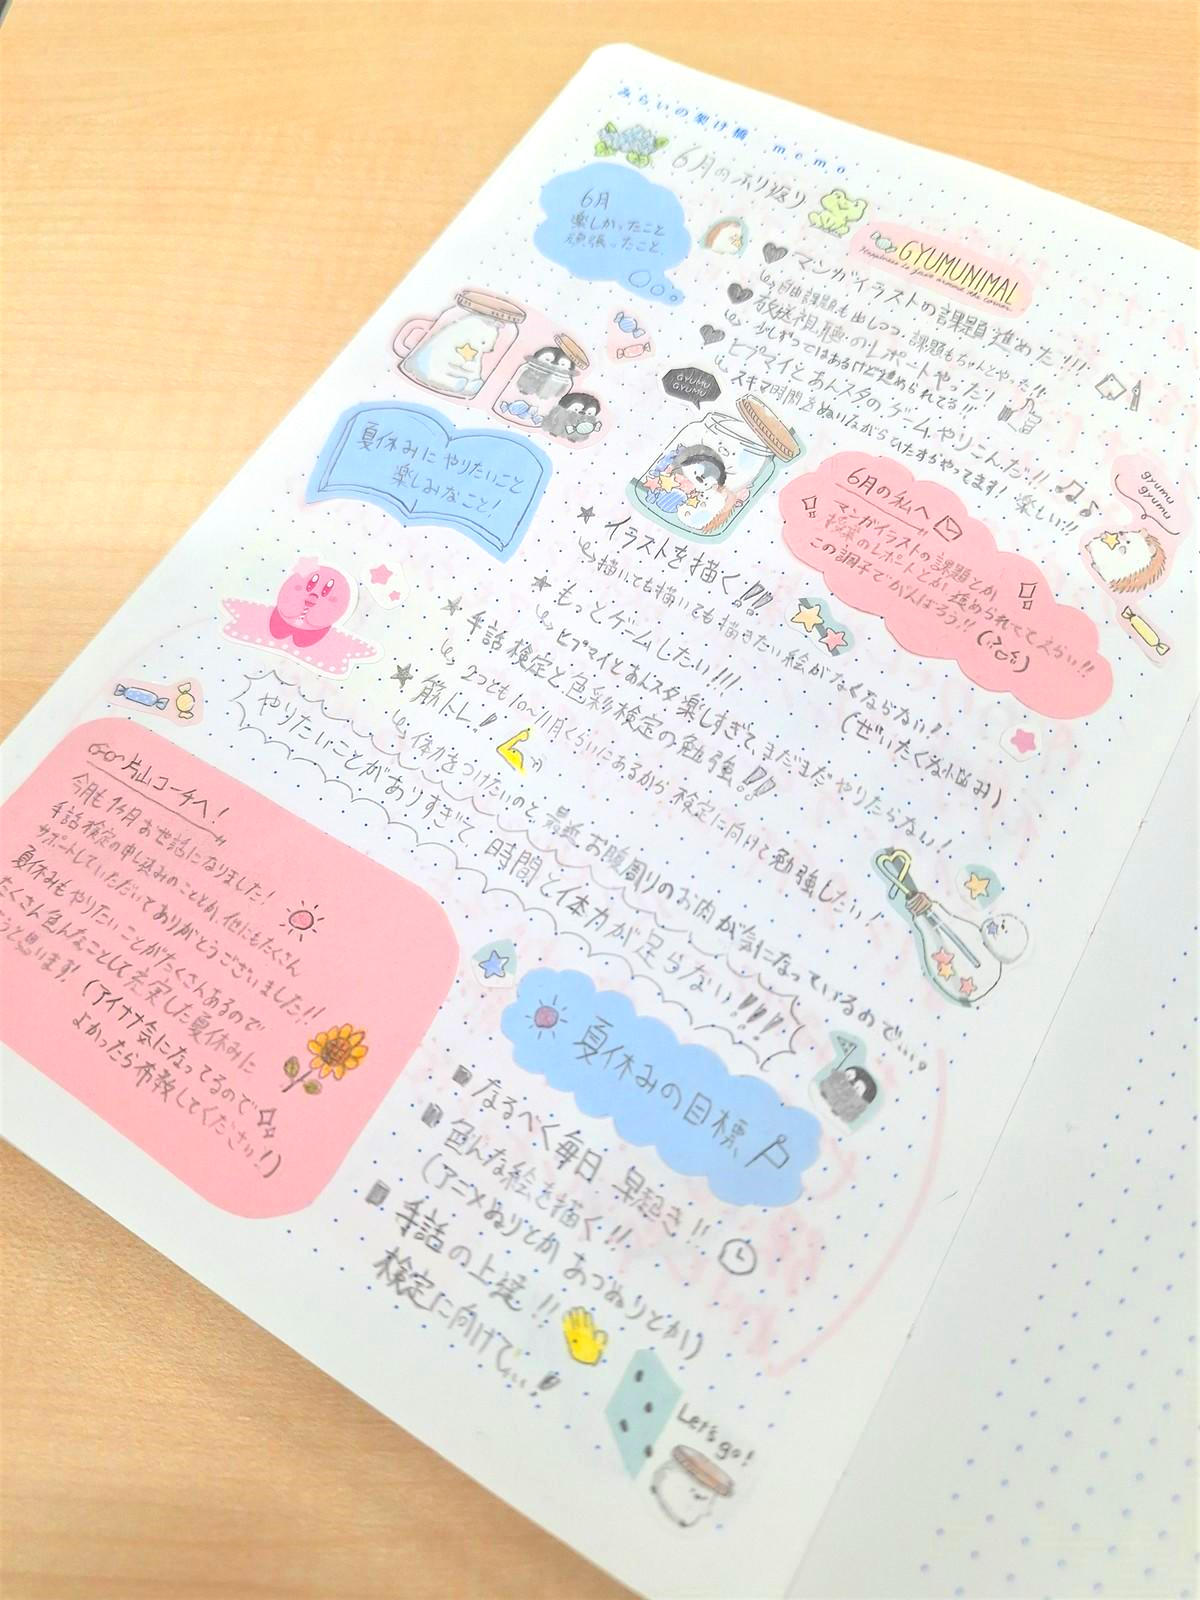 みらいの架け橋 memo
6月のふり返り
6月
楽しかったこと
頑張ったこと
GYUMUNIMAL
Happiness is just around the corner.
マンガイラストの課題進めた!!!
自由課題も出しつつ、課題もちゃんとやった!!
放送視聴のレポートやった!
少しずつではあるけど進められてる!!
ヒプマイとあんスタのゲームやりこんだ!!
スキマ時間をぬいながらひたすらやってます!楽しい!!
GYUMU
GYUMU
gyumu
gyumu
6月の私へ
マンガイラストの課題とか
授業のレポートとか進められててえらい!!
この調子でがんばろう!!
夏休みにやりたいこと
楽しみなこと!
★ イラストを描く!!
描いても描いても描きたい絵がなくならない!
(ぜいたくな悩み)
★ もっとゲームしたい!!!
ヒプマイとあんスタ楽しすぎて、まだまだやりたらない!
★ 手話検定と色彩検定の勉強!!
2つとも10~11月くらいにあるから検定に向けて勉強したい!
★ 筋トレ!!
体力をつけたいのと、最近お腹周りのお肉が気になっているので…。
やりたいことがありすぎて、時間と体力が足らない!!!!
片山コーチへ!
今月も1ヶ月お世話になりました!
手話検定の申し込みのこととか、他にもたくさん
サポートしていただいてありがとうございました!!
夏休みもやりたいことがたくさんあるので
たくさん色んなことして充実した夏休みに
うと思います!
(アイナナ気になってるので
よかったら布教してください!)
夏休みの目標
なるべく毎日 早起き!!
色んな絵を描く!!
(アニメぬりとかあつぬりとか)
手話の上達!!
検定に向けて…!
Let's go!